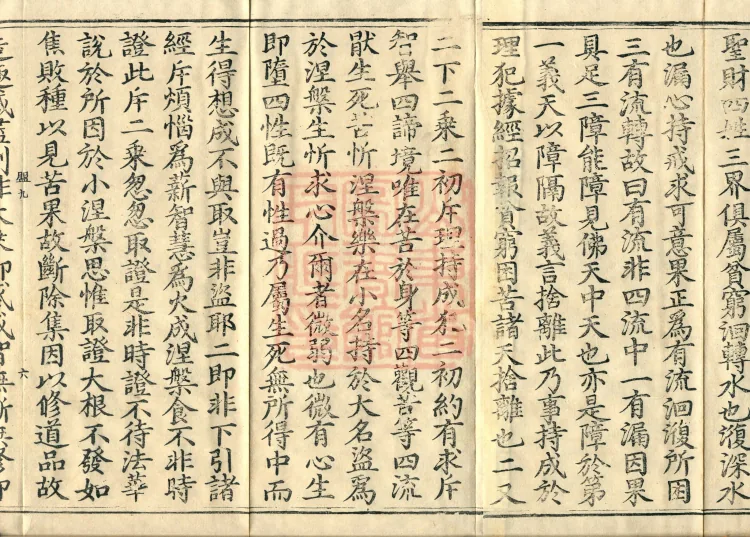 聖財四姓三界俱屬貧窮洄轉水也澓深水
也漏心持戒求可意果正爲有流洄澓所困
三有流轉故曰有流非四流中一有漏因果
具足三障能障見佛天中天也亦是障於第
一義天以障隔故義言捨離此乃事持成於
理犯據經招報貧窮困苦諸天捨離也二又
二下二乘二初斥理持成犯二初約有求斥
智舉四諦境唯在苦於身等四觀苦等四流
厭生死苦忻涅槃樂在小名持於大名盜爲
於涅槃生忻求心介爾者微弱也微有心生
即墮四性既有性過乃屬生死無所得中而
生得想成不與取豈非盜耶二即非下引諸
經斥煩惱爲薪智慧爲火成涅槃食不非時
證此斥二乘忽忽取證是非時證不待法華
說於所因於小涅槃思惟取證大根不發如
焦敗種以見苦果故斷除集因以修道品故
盟九
六